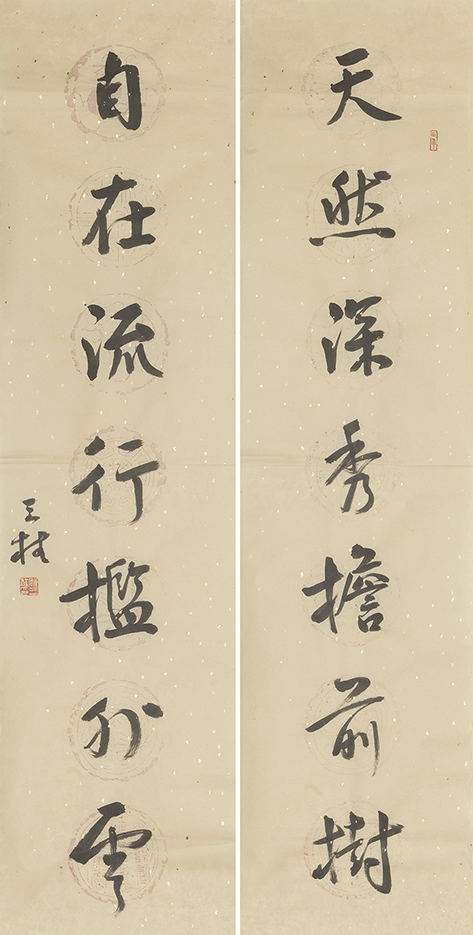 天然深秀檐前樹
自在流行檻外雲